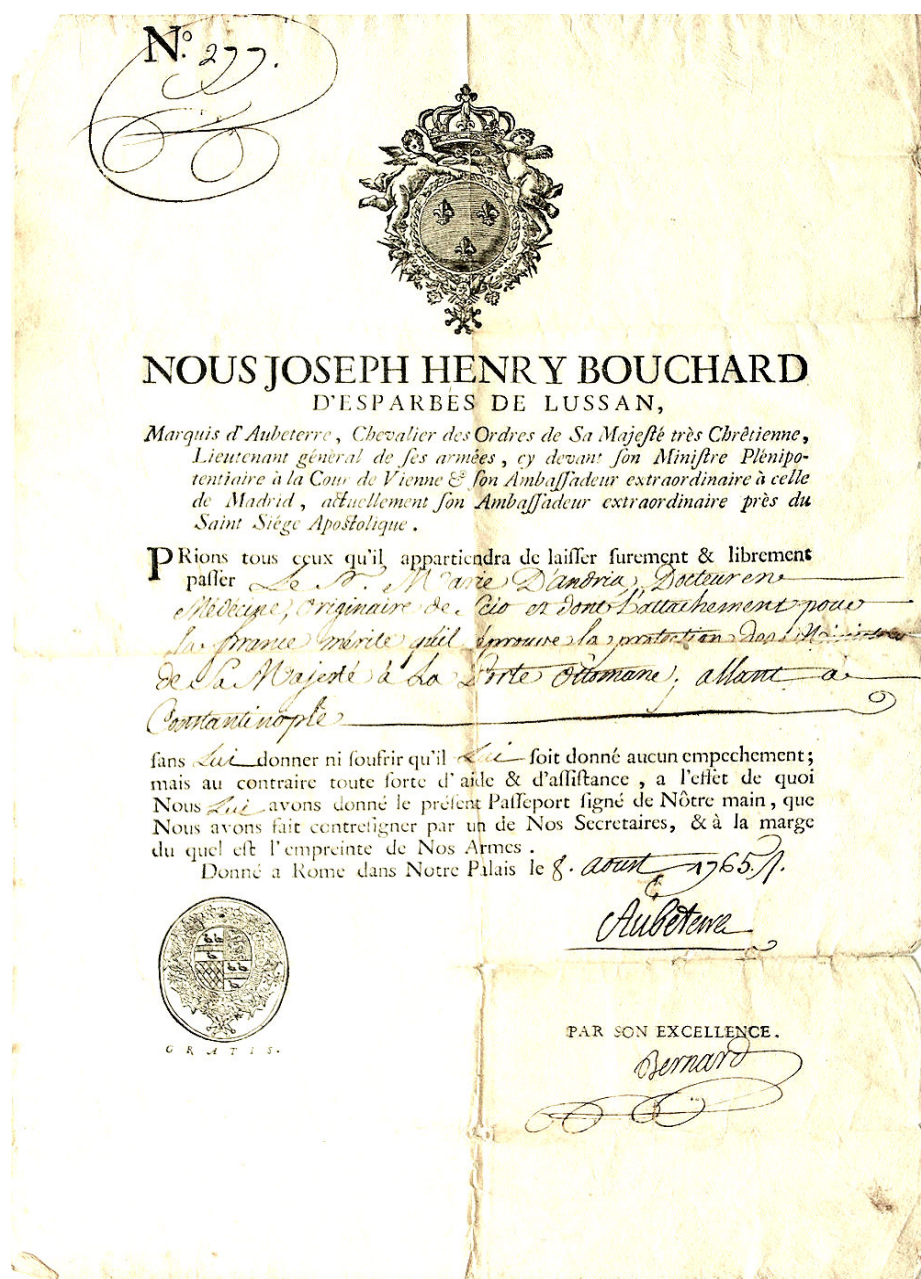 N.º 277.
NOUS JOSEPH HENRY BOUCHARD
D'ESPARBÉS DE LUSSAN,
Marquis d'Aubeterre, Chevalier des Ordres de Sa Majesté très Chrêtienne,
Lieutenant général de ses armées, cy devant son Ministre Plénipo-
tentiaire à la Cour de Vienne & son Ambassadeur extraordinaire à celle
de Madrid, actuellement son Ambassadeur extraordinaire près du
Saint Siége Apostolique.
PRions tous ceux qu'il appartiendra de laisser surement & librement
passer Le Sr. Marie D'andria, Docteur en
Médecine, Originaire de Scio et dont l'attachement pour
la france mérite qu'il éprouve la protection des Ministres
de Sa Majesté à La Porte Ottomane; allant à
Constantinople
sans Lui donner ni soufrir qu'il Lui soit donné aucun empechement;
mais au contraire toute sorte d'aide & d'assistance, a l'effet de quoi
Nous Lui avons donné le présent Passeport signé de Nôtre main, que
Nous avons fait contresigner par un de Nos Secretaires, & à la marge
du quel est l'empreinte de Nos Armes.
Donné a Rome dans Notre Palais le 8. Aoust 1765.
Aubeterre
GRATIS.
PAR SON EXCELLENCE.
Bernard